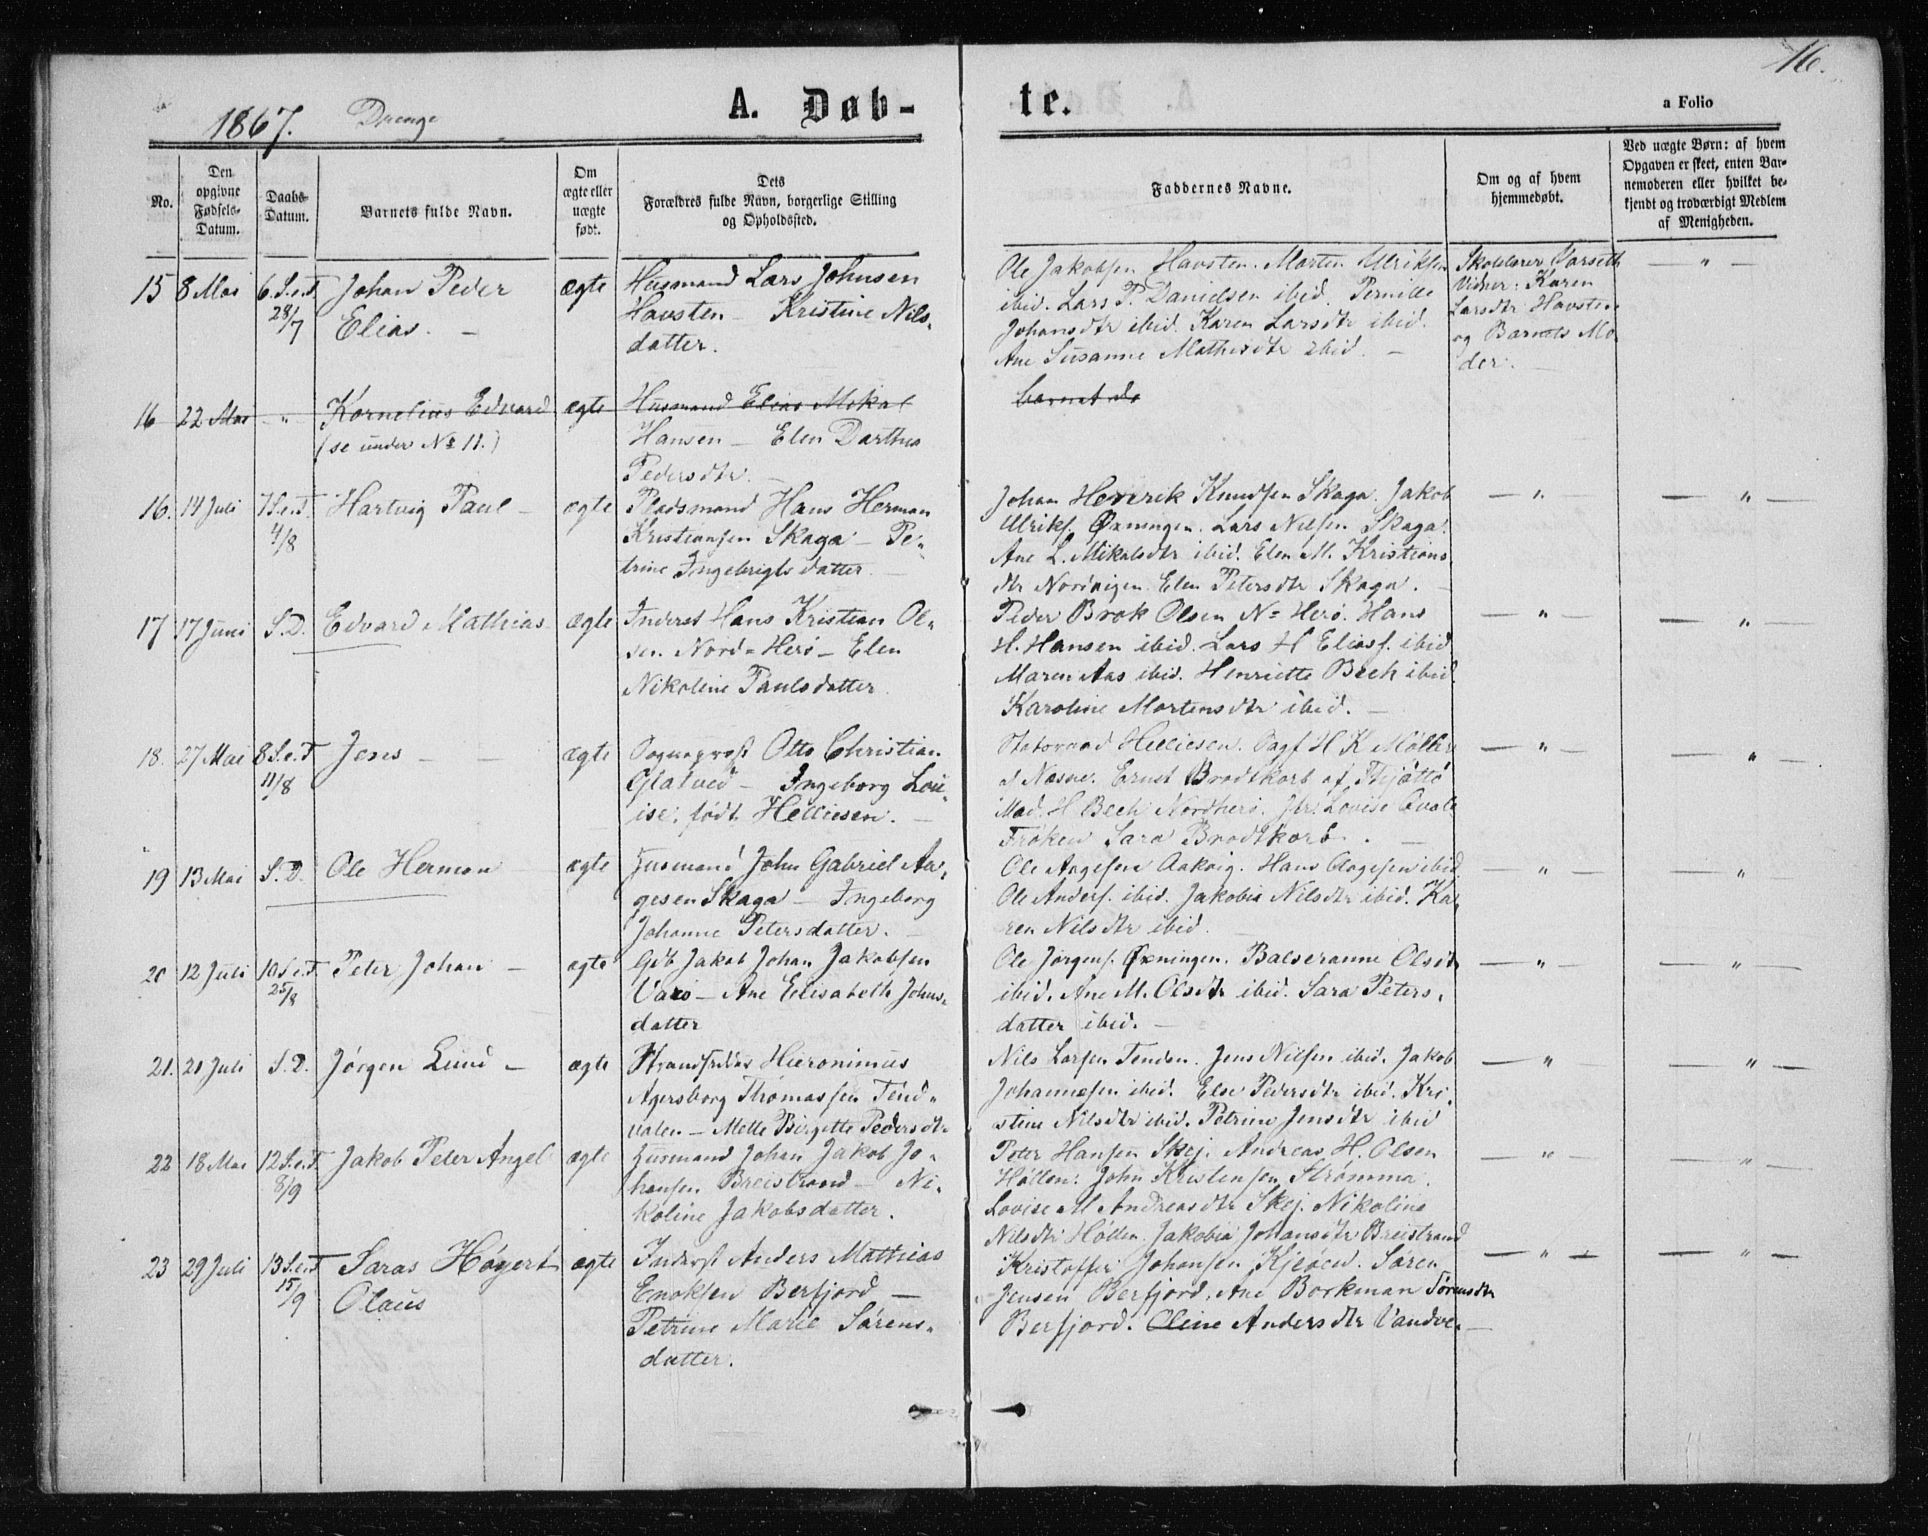 16.
1867. Drenge
A. Døb-
te.
a Folio
No.
Den
opgivne
Fødsels-
Datum.
Daabs-
Datum.
Barnets fulde Navn.
Om
ægte eller
uægte
født.
Dets
Forældres fulde Navn, borgerlige Stilling
og Opholdssted.
Faddernes Navne.
Om og af hvem
hjemmedøbt.
Ved uægte Børn: af hvem
Opgaven er skeet, enten Bar-
nemoderen eller hvilket be-
kjendt og troværdigt Medlem
af Menigheden.
15 8 Mai 6. S. e. T. 28/7
Johan Peder
Elias. -
ægte
Husmand Lars Johnsen
Havsten - Kristine Nils-
datter.
Ole Jakobsen Havsten. Morten Ulriksen
ibid. Lars P. Danielsen ibid. Pernille
Johansdtr ibid. Karen Larsdtr ibid.
Ane Susanne Mathisdtr ibid. -
Skolelærer Varseth
Vidner: Karen
Larsdtr Havsten
og Barnets Mo-
der.
— " —
16 22 Mai - " -
Kornelius Edvard
(se under No 11.)
ægte
Husmand Elias Mikal
Hansen - Elen Darthea
Pedersdtr. -
16. 14 Juli 7 S. e. T. 4/8
Hartvig Paul -
ægte
Pladsmand Hans Herman
Kristiansen Skaga - Pe-
trine Ingebrigtsdatter. -
Johan Henrik Knudsen Skaga. Jakob
Ulriks. Øxningen. Lars Nilsen Skaga.
Ane L. Mikalsdtr ibid. Elen M. Kristians
dtr Nordvigen. Elen Petersdtr Skaga. -
— " —
— " —
17 17 Juni S. D.
Edvard Mathias
ægte
Inderst Hans Kristian Ol-
sen Nord-Herø - Elen
Nikoline Paulsdatter.
Peder Brok Olsen N= Herø. Hans
H. Hansen ibid. Lars H Elias. ibid
Maren Aas ibid. Henriette Bech ibid.
Karoline Mortensdtr ibid. -
— " —
— " —
18. 27 Mai 8 S. e. T. 11/8
Jens - -
ægte
Sogneprest Otto Christian
Glatved - Ingeborg Lou-
ise, født Helliesen. -
Statsraad Helliesen. Sagf H K Møller
Nesne. Ernst Brodtkorb af Thjøttø
Mad. H Bech Nordherø. Louise Qvale
Frøken Sara Brodtkorb. -
— " —
— " —
19 13 Mai S. D.
Ole Herman
ægte
Husmand John Gabriel Aa-
gesen Skaga - Ingeborg
Johanne Petersdatter. -
Ole Aagesen Aakvig. Hans Aagesen ibid.
Ole Anders. ibid. Jakobia Nilsdtr ibid. Ka-
ren Nilsdtr ibid.
— " —
— " —
20 12 Juli 10 S. e. T. 25/8
Peter Johan -
ægte
Gdb Jakob Johan Jakobsen
Varø - Ane Elisabeth Johns-
datter
Ole Jørgens. Øxningen. Balseranne Olsdtr
ibid. Ane M. Olsdtr ibid. Sara Peters-
datter ibid. -
— " —
— " —
21. 20 Juli S. D.
Jørgen Lund -
ægte
Strandsidder Hieronimus
Agersborg Thomassen Tend-
valen - Mette Birgette Pedersdtr
Nils Larsen Tenden. Jens Nilsen ibid. Jakob
Johannesen ibid. Else Pedersdtr ibid. Kri-
stine Nilsdtr ibid. Petrine Jensdtr ibid
— " —
— " —
22 18 Mai 12 S. e. T. 8/9
Jakob Peter Angel
ægte
Husmand Johan Jakob Jo-
hansen Breistrand - Ni-
koline Jakobsdatter.
Peter Hansen Skej. Andreas H. Olsen
Høllen. John Kristensen Strømma.
Lovise M Andreasdtr Skej. Nikoline
Nilsdtr Høllen. Jakobia Johansdtr Breistrand
— " —
— " —
23 29 Juli 13 S. e. T. 15/9
Saras Høyert
Olaus
ægte
Inderst Anders Mathias
Enoksen Berfjord -
Petrine Marie Sørens-
datter.
Kristoffer Johansen Søren
Jensen Berfjord. Ane Borkman Sørensdtr
Berfjord. Oline Andersdtr Vandve. -
— " —
— " —